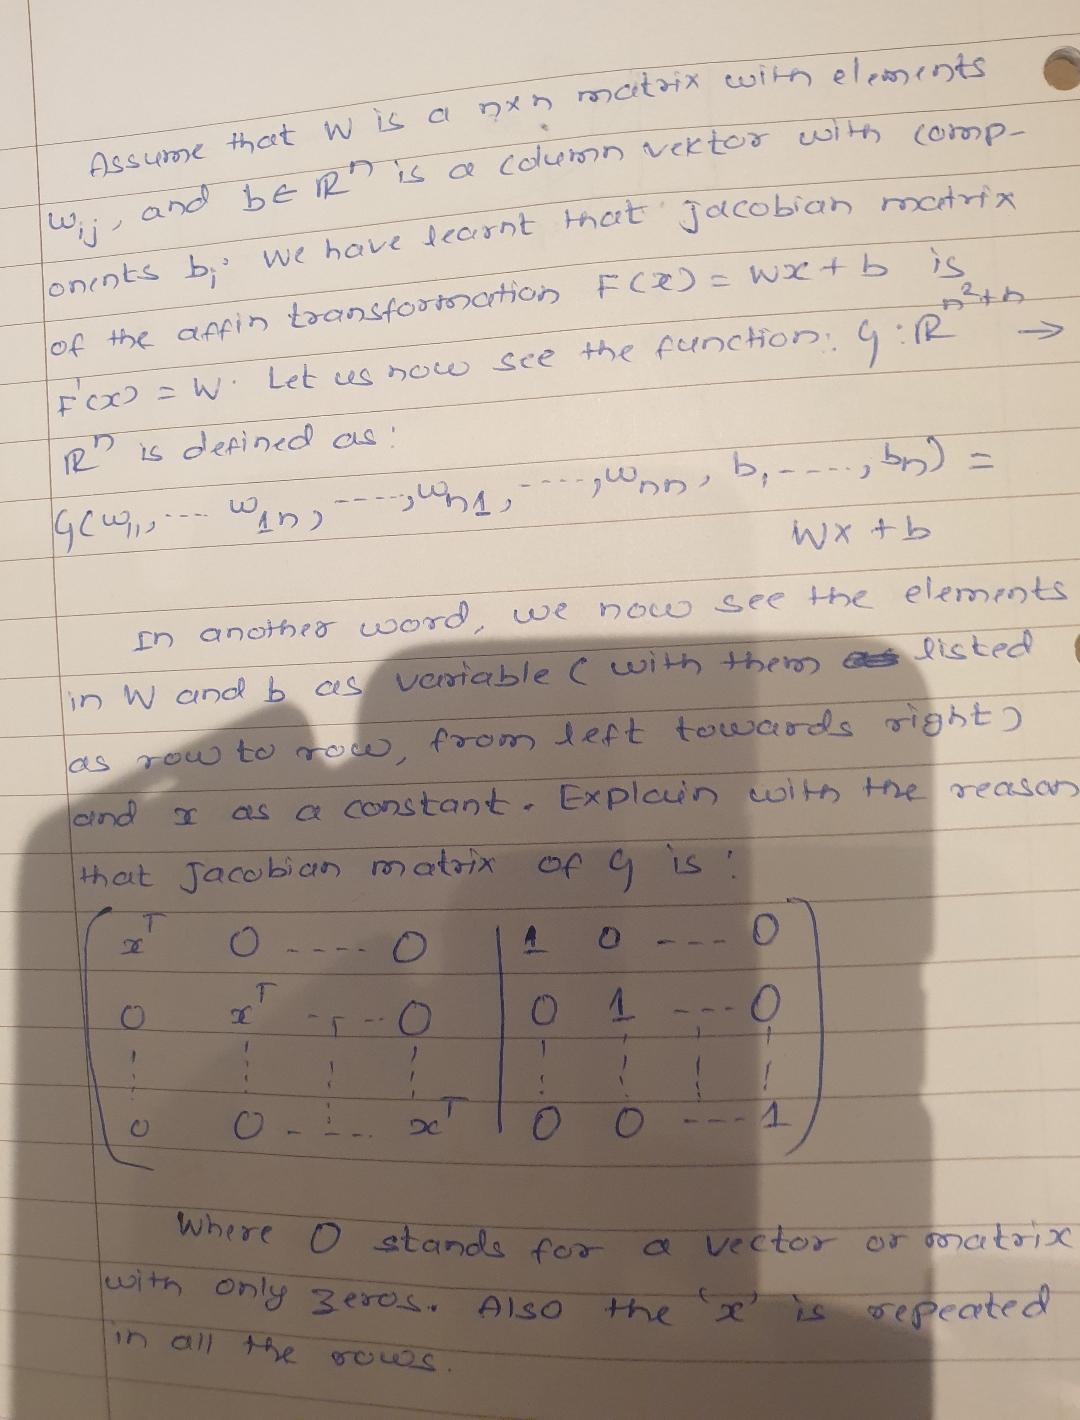 Assume that W is a n×n matrix with elements
w_ij, and b ∈ ℝ^n is a column vektor with comp-
onents b_i. We have learnt that jacobian matrix
of the affin transformation F(x) = Wx + b is
F'(x) = W. Let us now see the function: G : ℝ^{n²+n} →
ℝ^n is defined as:
G(w_11, ---- w_1n, ----, w_n1, ----, w_nn, b_1, ----, b_n) =
Wx + b
In another word, we now see the elements
in W and b as variable (with them listed
as row to row, from left towards right)
and x as a constant. Explain with the reason
that Jacobian matrix of G is:
x^T 0 ---- 0 | 1 0 --- 0
0 x^T ---- 0 | 0 1 --- 0
⋮ ⋮ ⋮ ⋮ | ⋮ ⋮ ⋮ ⋮
0 0 ---- x^T | 0 0 --- 1
Where 0 stands for a vector or matrix
with only zeros. Also the 'x' is repeated
in all the rows.